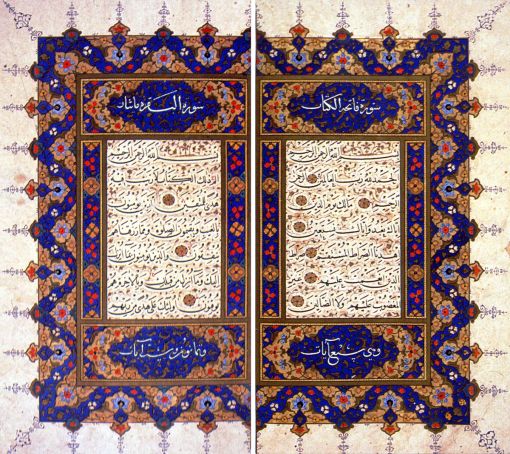 سورة فاتحة الكتاب
بسم الله الرحمن الرحيم
الحمد لله رب العالمين
الرحمن الرحيم مالك يوم الدين
اياك نعبد واياك نستعين
اهدنا الصراط المستقيم
صراط الذين انعمت عليهم غير
المغضوب عليهم ولا الضالين
وهي سبع آيات
سورة البقرة مائتان
بسم الله الرحمن الرحيم
الم ذلك الكتاب لا ريب فيه
هدى للمتقين الذين يؤمنون
بالغيب ويقيمون الصلوة ومما رزقناهم
ينفقون والذين يؤمنون بما انزل
اليك وما انزل من قبلك وبالاخرة هم
يوقنون اولئك على هدى من ربهم
وثمانون وست آيات